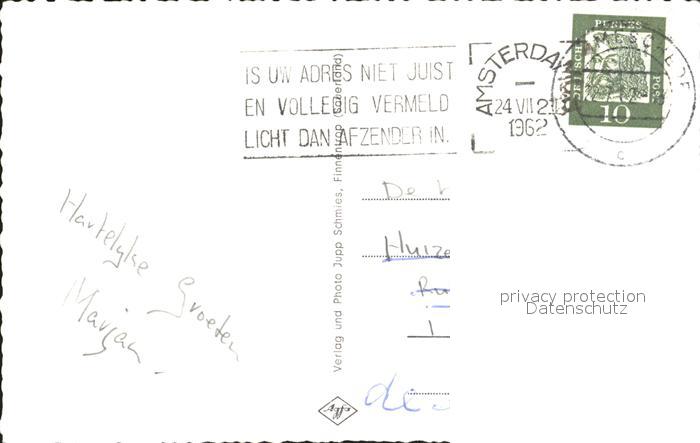 IS UW ADRES NIET JUIST
EN VOLLEDIG VERMELD
LICHT DAN AFZENDER IN.
AMSTERDAM
24 VII 21
1962
BUNDES
POST
10
C
Hartelyke Groeten
Marjan
Verlag und Photo Jupp Schmies, Finnentrop (Sauerland)
De
Huize
1
Agfa
privacy protection
Datenschutz